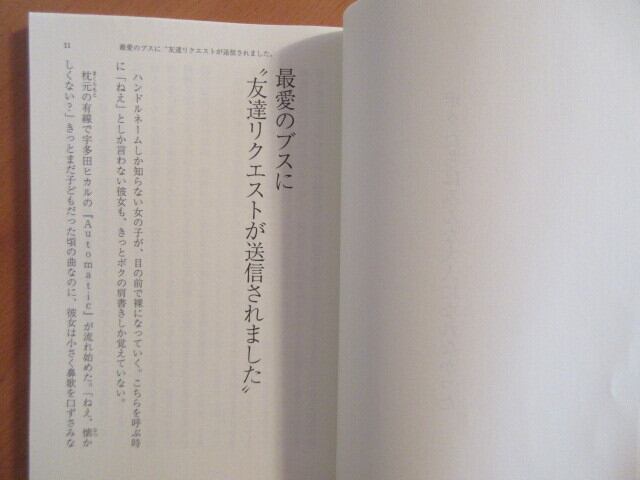 11 最愛のブスに〝友達リクエストが送信されました〟
最愛のブスに
〝友達リクエストが送信されました〟
ハンドルネームしか知らない女の子が、目の前で裸になっていく。こちらを呼ぶ時
に「ねえ」としか言わない彼女も、きっとボクの肩書きしか覚えていない。
枕元の有線で宇多田ヒカルの『Automatic』が流れ始めた。「ねえ、懐か
しくない?」きっとまだ子どもだった頃の曲なのに、彼女は小さく鼻歌を口ずさみな